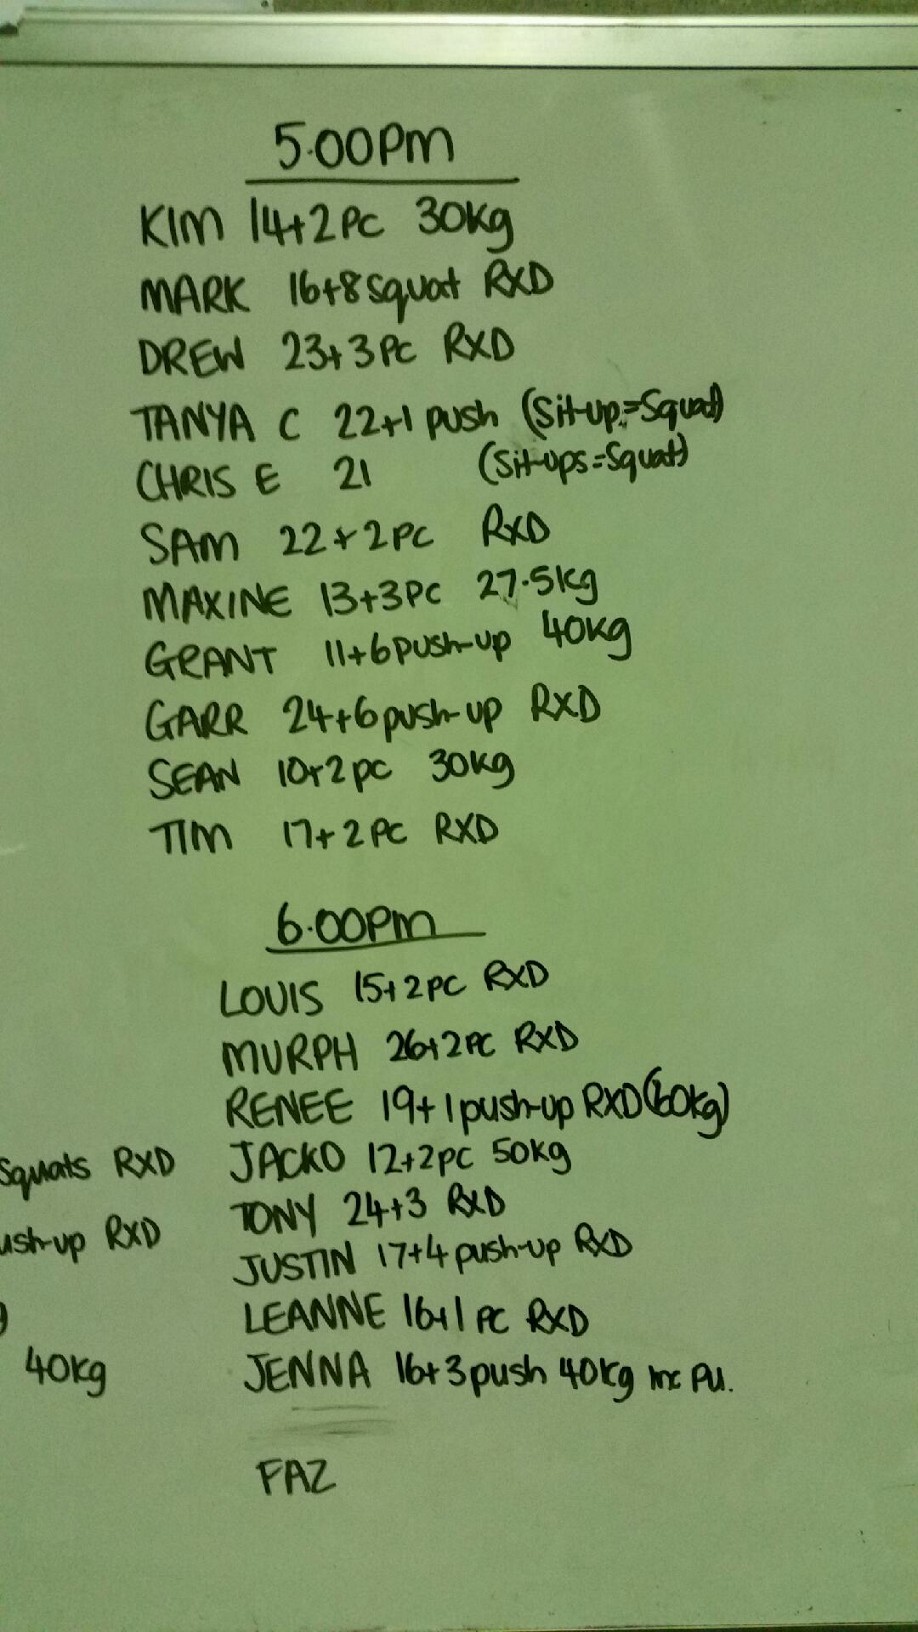 5.00PM
KIM 14+2PC 30Kg
MARK 16+8 squat RXD
DREW 23+3PC RXD
TANYA C 22+1 push (Sit-up=Squat)
CHRIS E 21 (Sit-ups=Squat)
SAM 22+2PC RXD
MAXINE 13+3PC 27.5kg
GRANT 11+6 push-up 40kg
GARR 24+6 push-up RXD
SEAN 10+2pc 30kg
TIM 17+2PC RXD
6.00PM
LOUIS 15+2PC RXD
MURPH 26+2PC RXD
RENEE 19+1 push-up RXD (60kg)
Squats RXD JACKO 12+2PC 50kg
TONY 24+3 RXD
ush-up RXD JUSTIN 17+4 push-up RXD
LEANNE 16+1 PC RXD
40kg JENNA 16+3 push 40kg inc PU.
FAZ